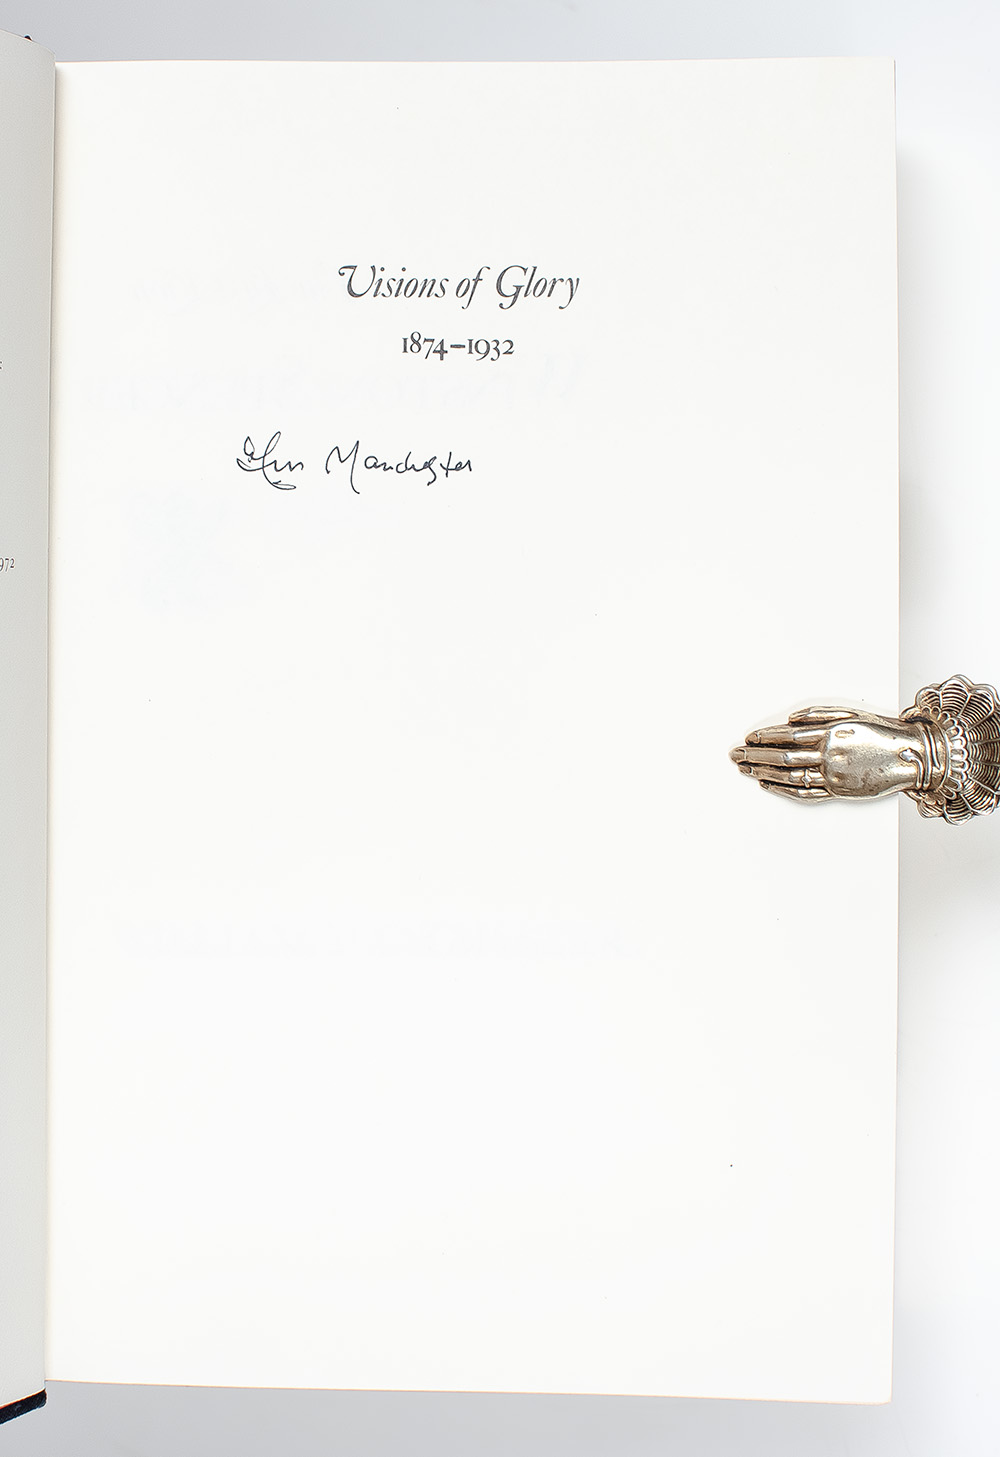 Visions of Glory
1874–1932
Manchester
972